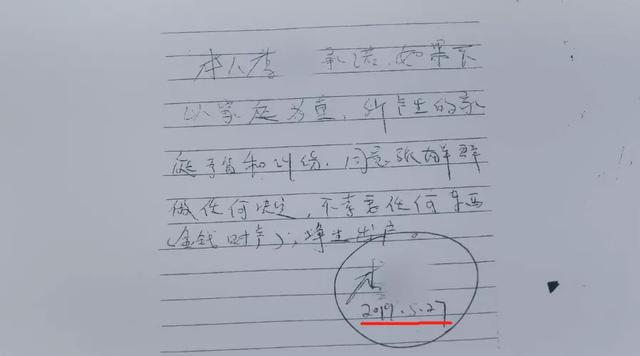 本人李 承诺.如果不
以家庭为重,所产生的家
庭矛盾和纠纷.同意张
做任何决定,不索要任何东西
(金钱财产);净生出户。
李
2019.5.27